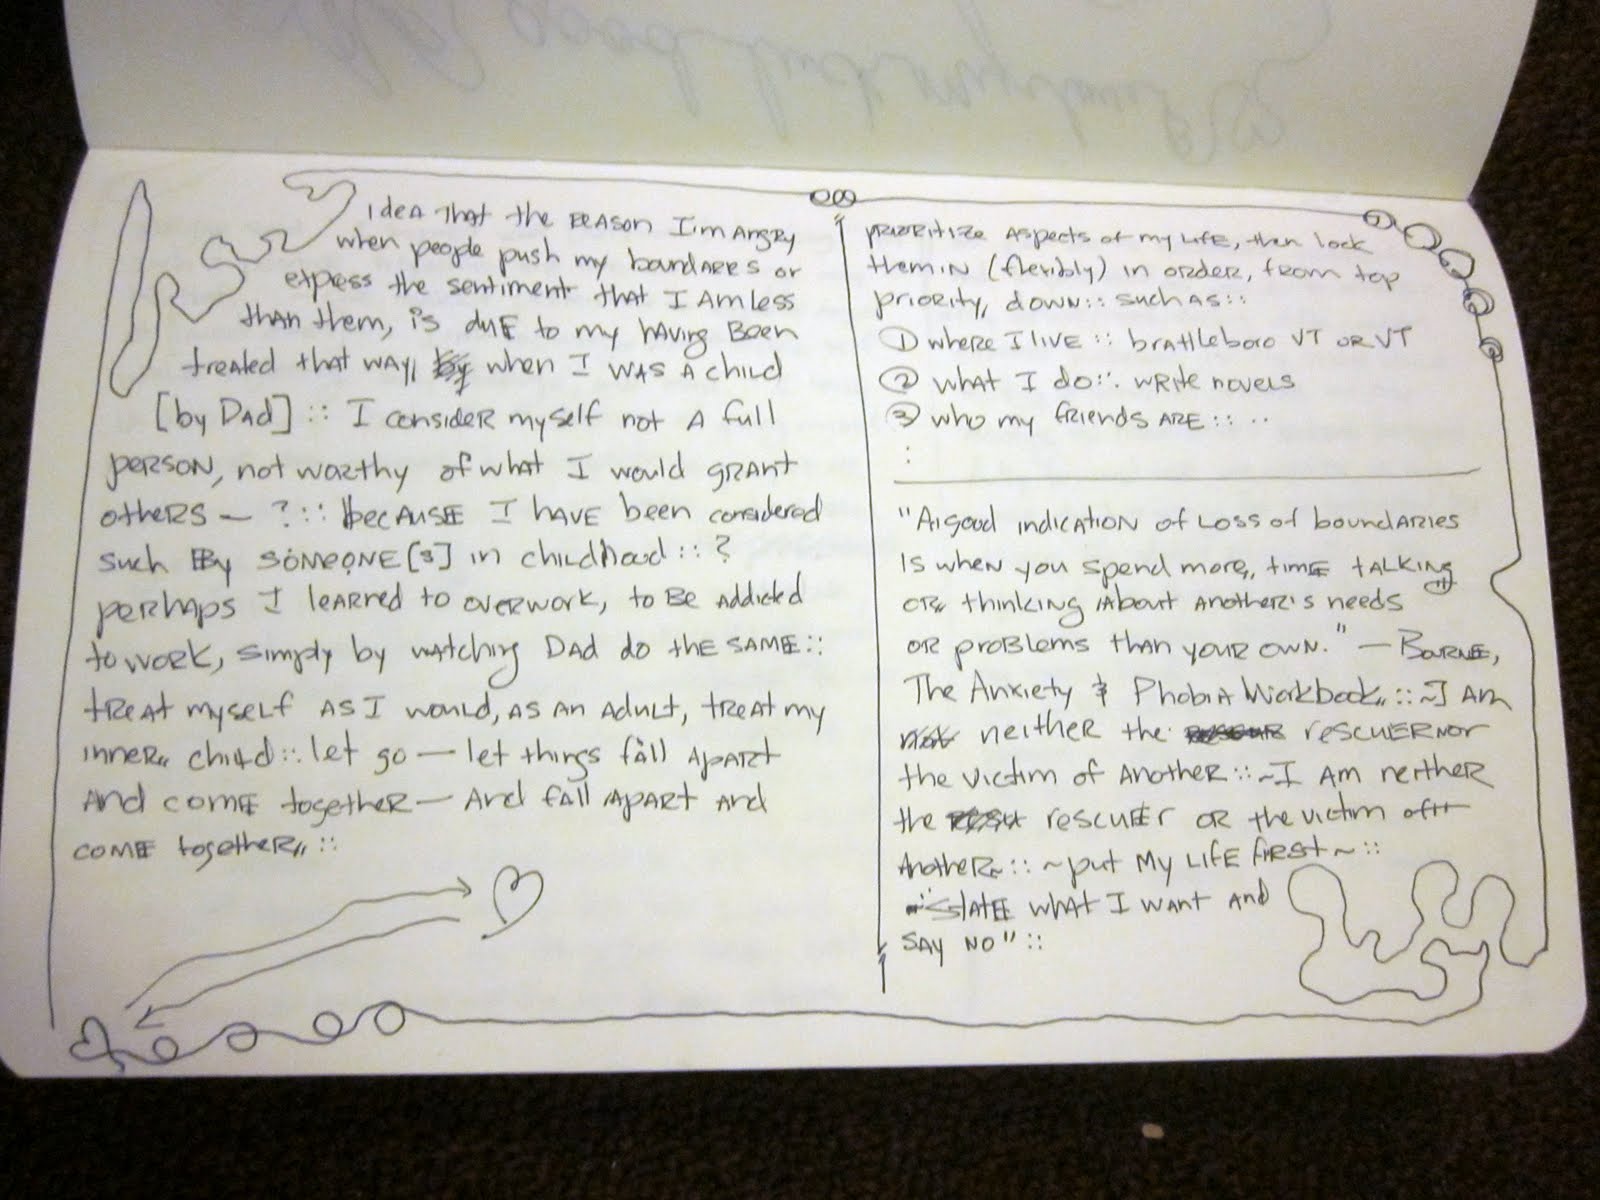 Idea that the reason I'm angry
when people push my boundares or
express the sentiment that I am less
than them, is due to my having been
treated that way, by when I was a child
[by Dad] :: I consider myself not a full
person, not worthy of what I would grant
others — ? :: because I have been considered
such by someone[s] in childhood :: ?
perhaps I learned to overwork, to be addicted
to work, simply by watching Dad do the same ::
treat myself as I would, as an adult, treat my
inner child :: let go — let things fall apart
and come together — and fall apart and
come together :: 
prioritize aspects of my life, then lock
them in (flexibly) in order, from top
priority, down :: such as ::
① where I live :: brattleboro VT or VT
② what I do :: write novels
③ who my friends are :: ..
:
"A good indication of loss of boundaries
is when you spend more time talking
or thinking about another's needs
or problems than your own." — Bourne,
The Anxiety & Phobia Workbook :: ~I am
not neither the rescuer nor
the victim of another :: ~I am neither
the rescuer or the victim of
another :: ~put my life first~ ::
state what I want and
say no" ::